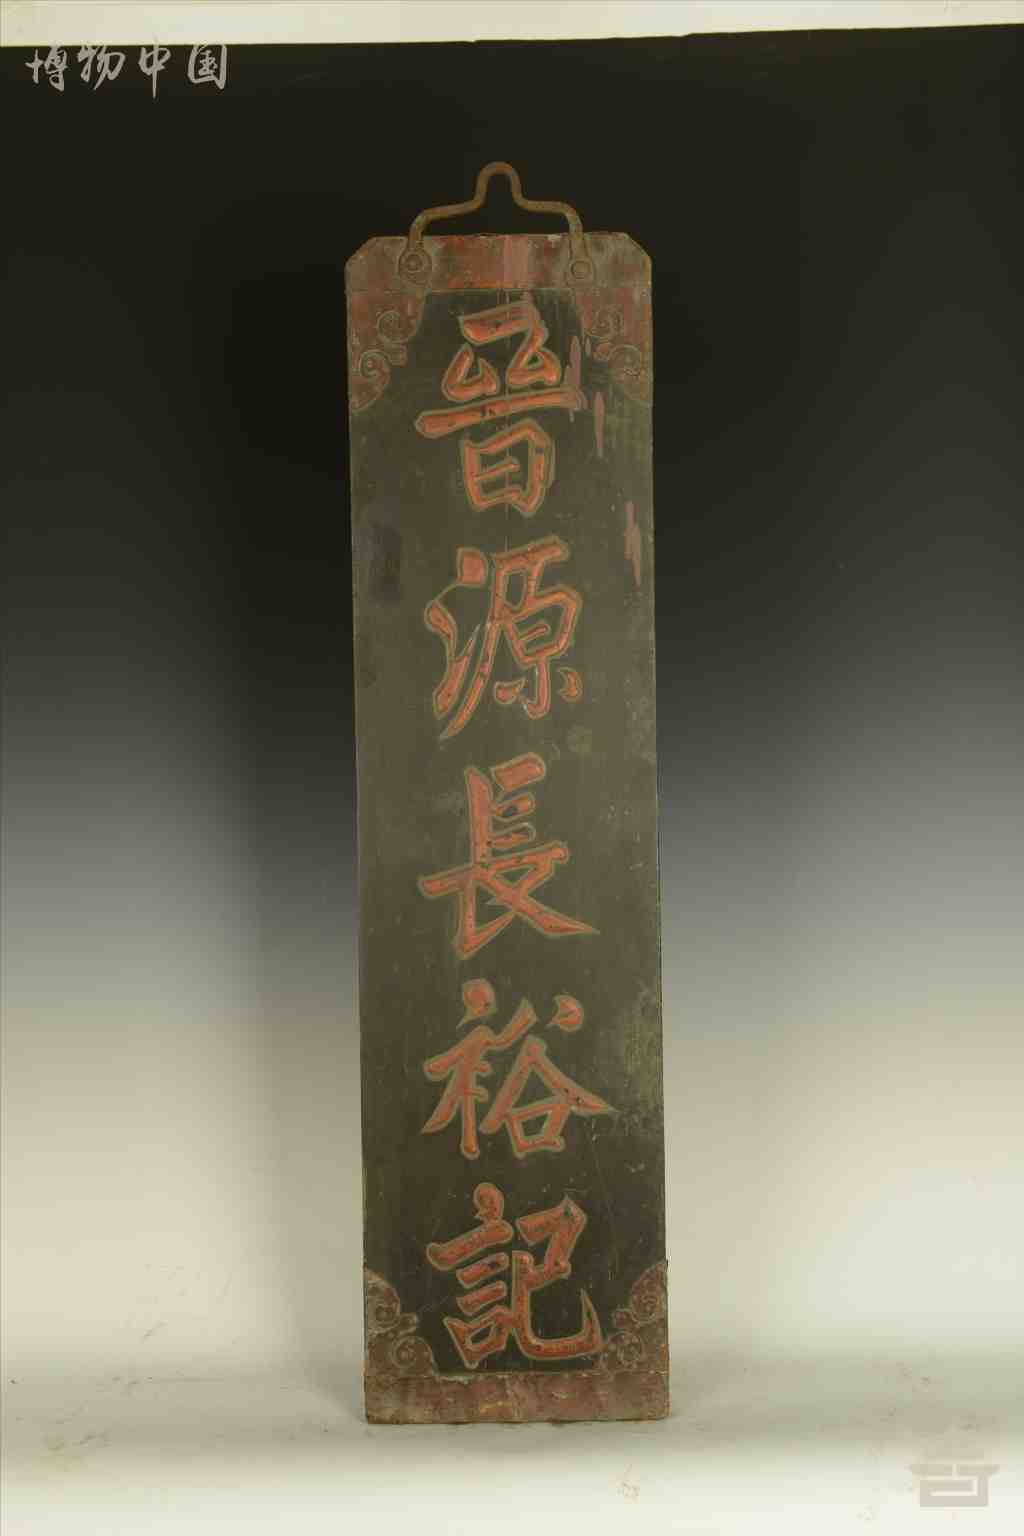 博物中国
晉源長裕記